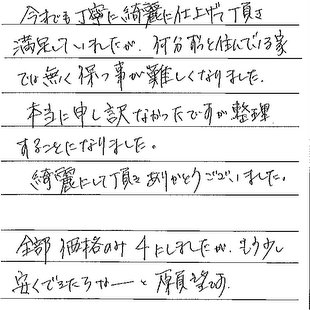 今までも丁寧に綺麗に仕上げて頂き
満足していましたが、何分ずっと住んでいる家
では無く保つ事が難しくなりました。
本当に申し訳なかったですが整理
することになりました。
綺麗にして頂きありがとうございました。
全部価格のみ4にしましたが、もう少し
安くできたらなーと願望です。